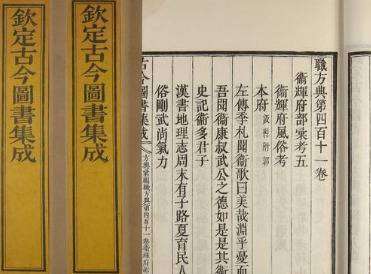 欽定古今圖書集成
欽定古今圖書集成
職方典第四百十一卷
衞輝府部彙考五
衞輝府風俗考
本府
左傳季札聞衞歌曰美哉淵乎憂而
吾聞衞康叔武公之德如是是其衞
史記衞多君子
漢書地理志周末有子路夏育民人
俗剛武尚氣力
古今圖書集成 方輿彙編職方典第四百十一卷